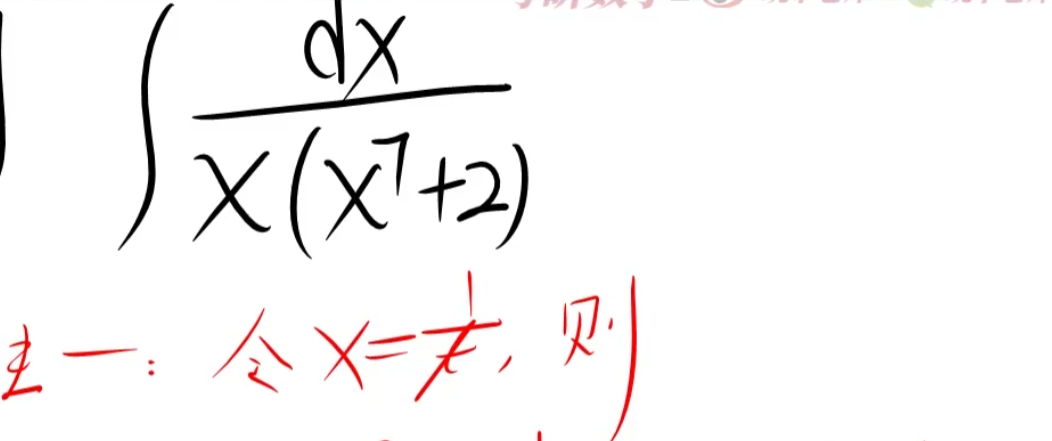 ∫ dx / x(x⁷+2)
法一: 令 x = 1/t, 则